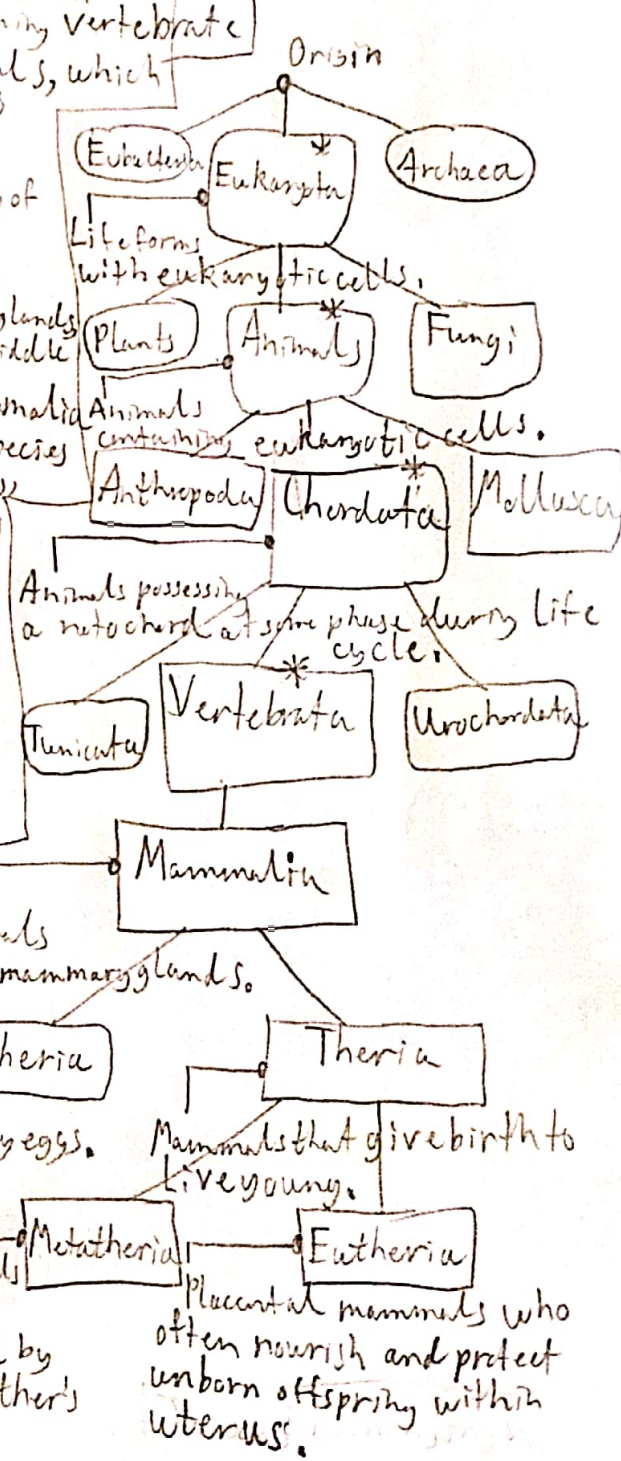 ning vertebrate
als, which
Origin
Eubacteria
Eukaryota
Archaea
of
Lifeforms
with eukaryotic cells.
glands
iddle
Plants
Animals
Fungi
malia
pecies
Animals
containing eukaryotic cells.
Anthropoda
Chordata
Mollusca
Animals possessing
a notochord at some phase during life
cycle.
Tunicata
Vertebrata
Urochordata
Mammalia
als
mammary glands.
heria
Theria
y eggs.
Mammals that give birth to
Live young.
Metatheria
Eutheria
ls
Placental mammals who
often nourish and protect
unborn offspring within
uterus.
by
ther's